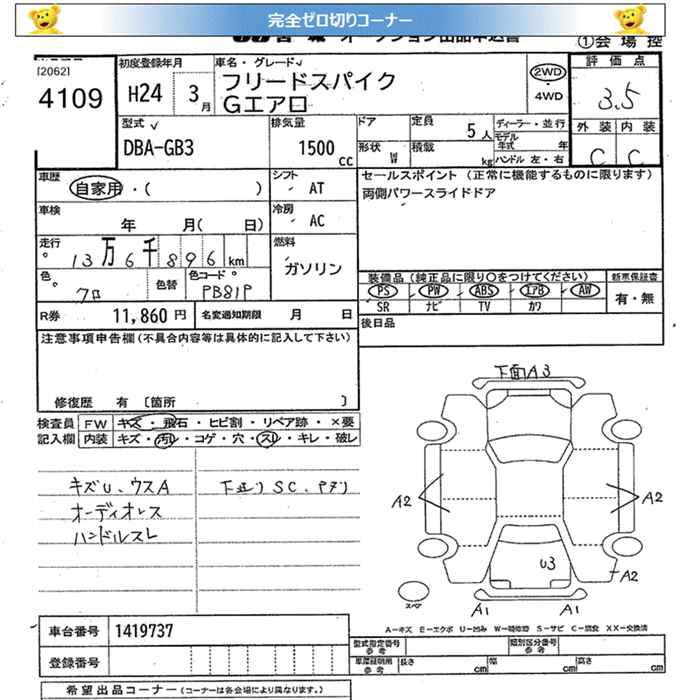 完全ゼロ切りコーナー
①会場控
[2062]
4109
初度登録年月
H24 3月
車名・グレード
フリードスパイク
Gエアロ
2WD
・4WD
評価点
3.5
外装 内装
C C
型式
DBA-GB3
排気量
1500 CC
ドア
形状 W
定員 5人
積載 kg
ディーラー・並行
モデル年式 年
ハンドル 左・右
車歴
自家用・( )
シフト
AT
セールスポイント(正常に機能するものに限ります)
両側パワースライドドア
車検
年 月( 日)
冷房
AC
走行
13万6千896km
燃料
ガソリン
色
クロ
色替
色コード
PB81P
装備品(純正品に限り○をつけてください)
PS PW ABS エアB AW
SR ナビ TV カワ
新車保証書
有・無
R券 11,860円
名変通知期限 月 日
後日品
注意事項申告欄(不具合内容等は具体的に記入して下さい)
修復歴 有 〔箇所 〕
検査員
記入欄
FW キズ・飛石・ヒビ割・リペア跡・×要
内装 キズ・汚レ・コゲ・穴・スレ・キレ・破レ
キズU、ウスA
オーディオレス
ハンドルスレ
下廻りSC、
下面A3
A2
A2
U3
A2
スペア
A1
A1
A-キズ E-エクボ U-凹み W-補修跡 S-サビ C-腐食 XX-交換済
車台番号 1419737
登録番号
型式指定番号
参考
類別区分番号
参考
参考
長さ cm
幅 cm
高さ cm
希望出品コーナー(コーナーは各会場により異なります。)